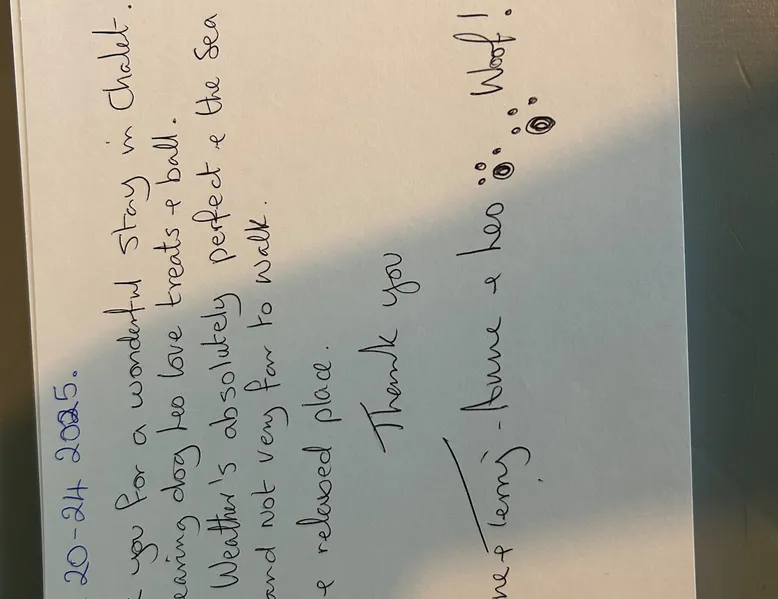 20-24 2025.
you for a wonderful stay in Chalet.
earing dog Leo love treats & ball.
Weather's absolutely perfect & the Sea
and not very far to walk.
& relaxed place.
Thank you
ne & Lenny - Anne & Leo Woof!